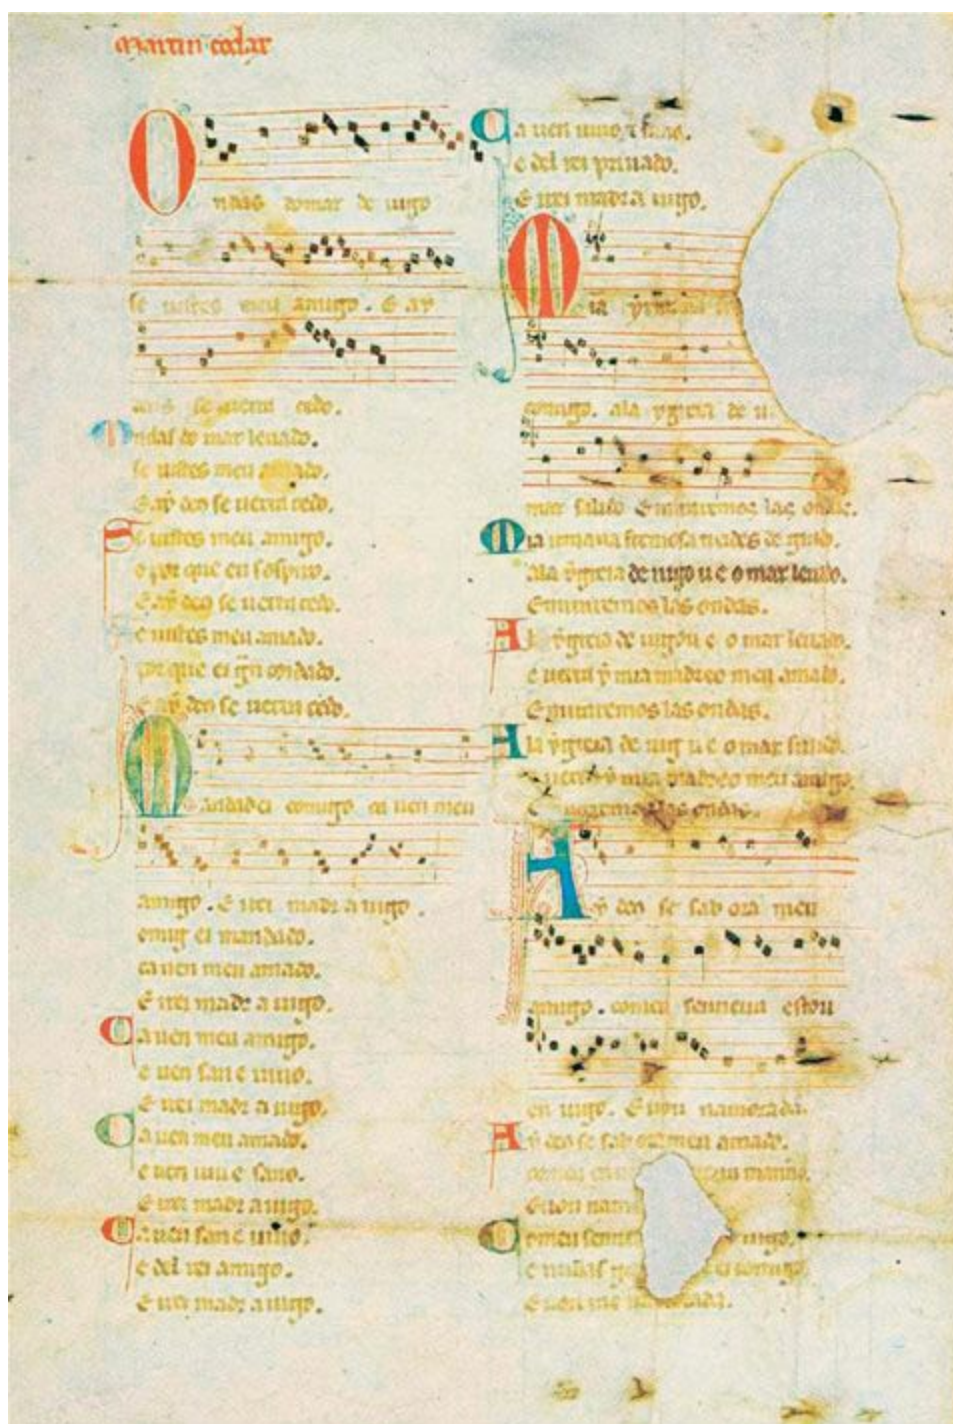 martin codax
Ondas do mar de uigo
se uistes meu amigo. E ay
deus se uerra cedo.
Ondas do mar leuado.
se uistes meu amado.
E aỹ deo se uerra cedo.
Se uistes meu amigo.
o por que eu sospiro.
E aỹ deo se uerra cedo.
Se uistes meu amado.
por que ei gñ coidado.
E aỹ deo se uerra cedo.
Mandad ei comigo ca uen meu
amigo. E irei madr a uigo.
comig ei mandado.
ca uen meu amado.
E irei madr a uigo.
Ca uen meu amigo.
e uen san e uiuo.
E irei madr a uigo.
Ca uen meu amado.
e uen uiu e sano.
E irei madr a uigo.
Ca uen san e uiuo.
e del rei amigo.
E irei madr a uigo.
Ca uen uiuo e sano.
e del rei priuado.
E irei madr a uigo.
Mia
comigo. ala ygreia de
mar salido E miraremos las ondas.
Mia irmana fremosa treides de grado.
ala ygreia de uigo u e o mar leuado.
E miraremos las ondas.
Ala ygreia de uigo u e o mar leuado.
e uerra y mia madreo meu amado.
E miraremos las ondas.
Ala ygreia de uig u e o mar salido.
e uerra y mia madreo meu amigo.
E miraremos las ondas.
Aỹ deo se sab ora meu
amigo. comeu senneira estou
en uigo. E uou namorada.
Aỹ deo se sab ora meu amado.
comeu en manno.
E uou nam
Comeu senne uigo.
e nullas comigo.
E uou namorada.